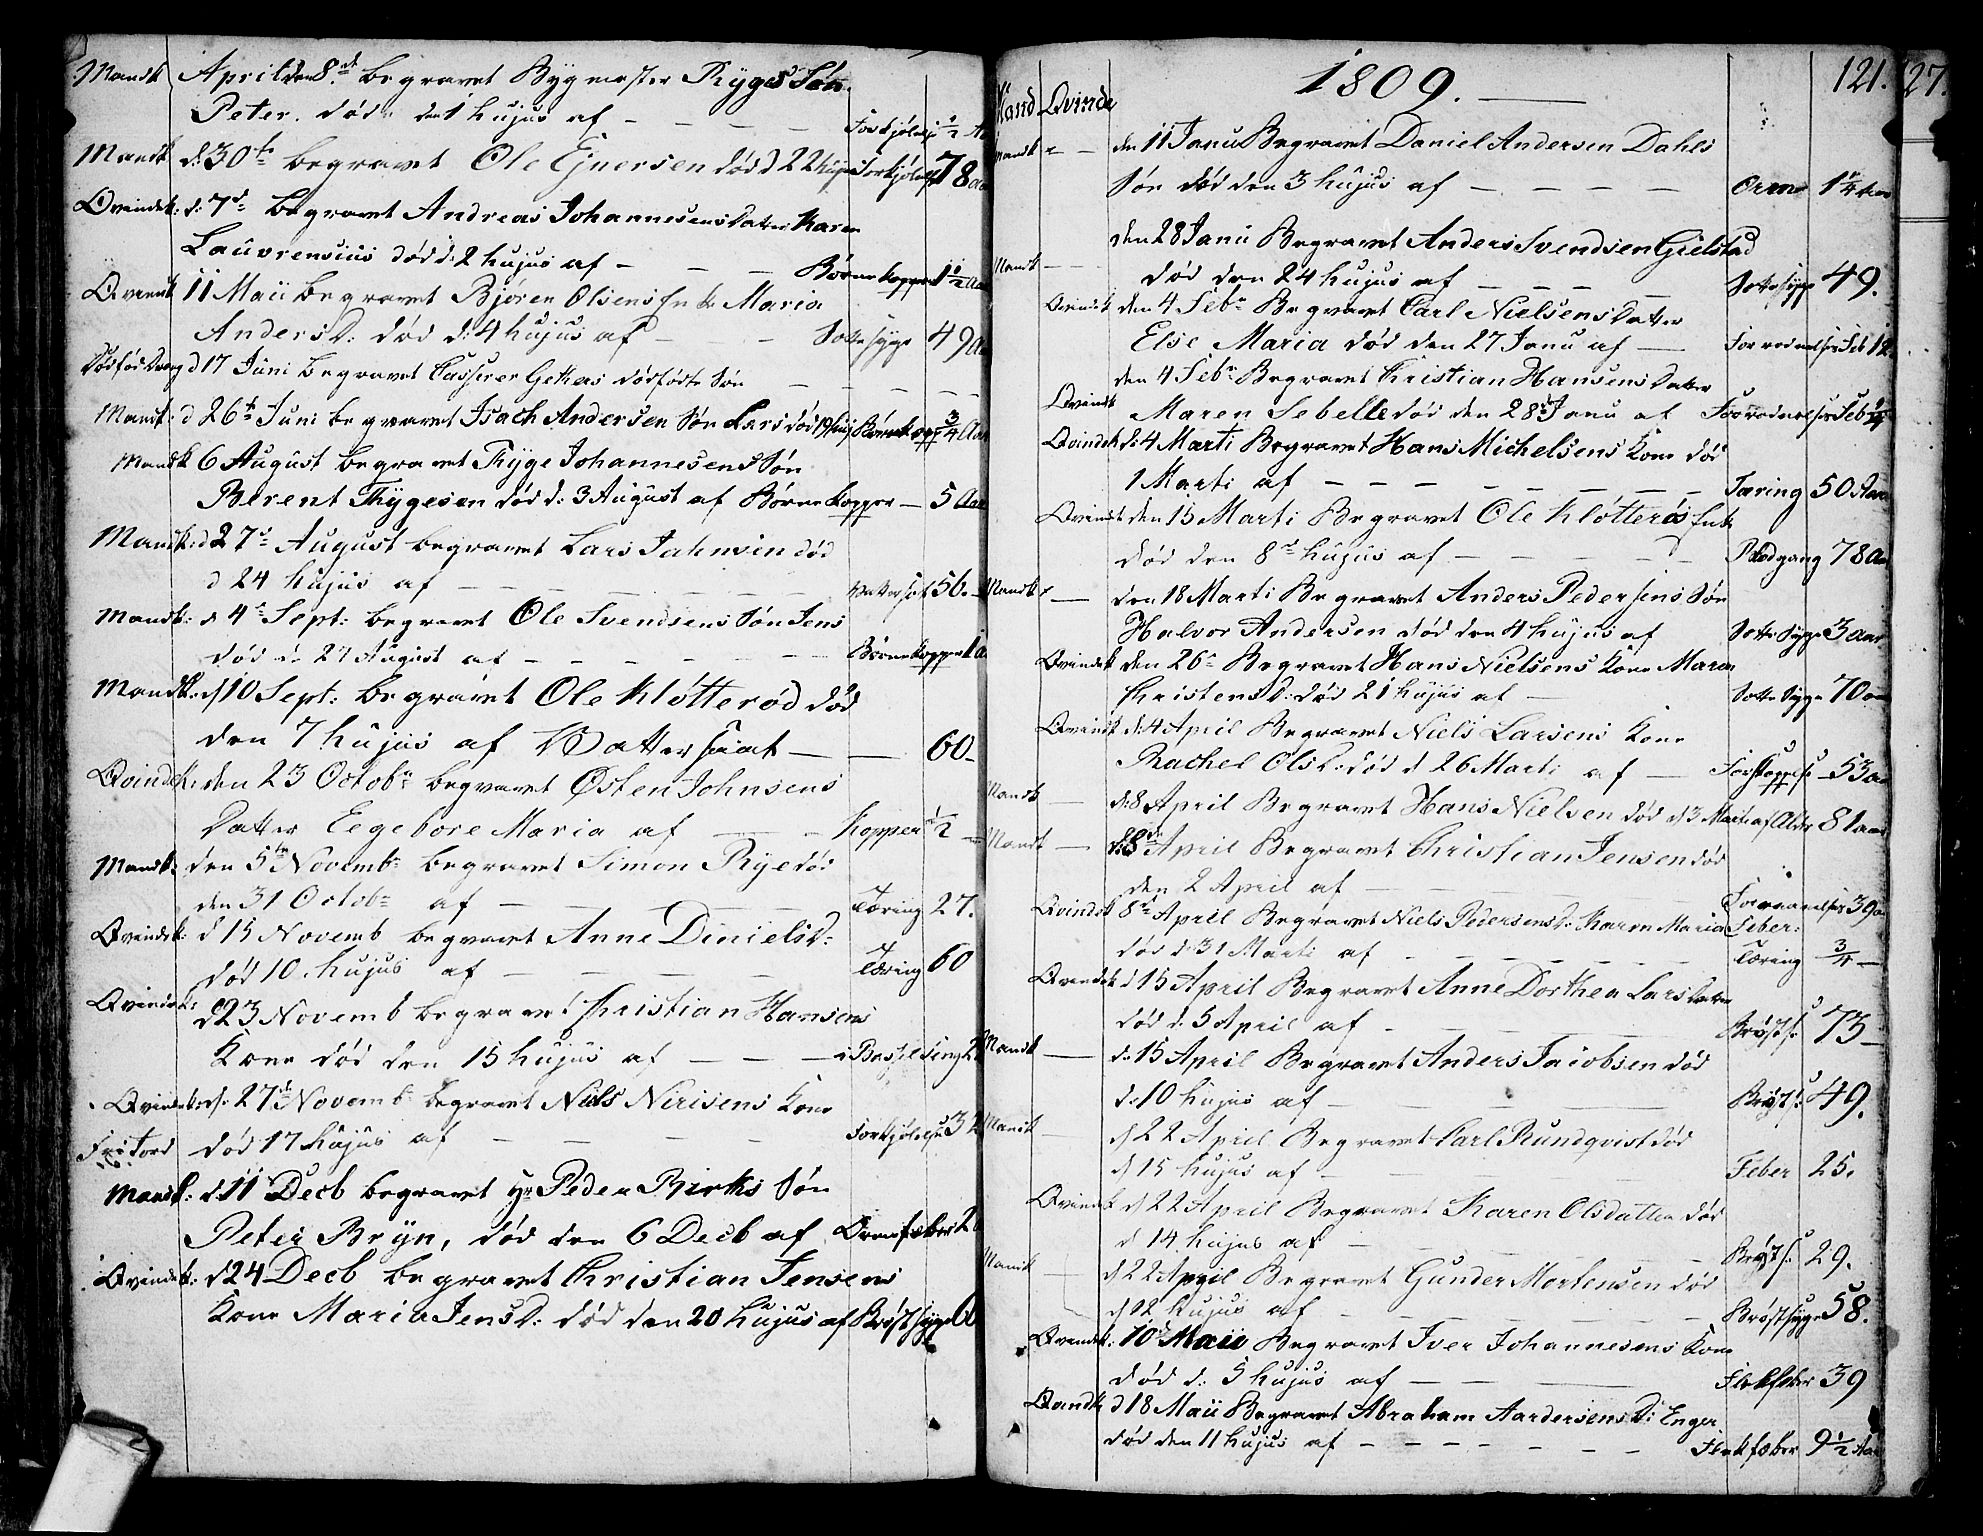 Mandk April den 8de begravet Bygmester Thyges Søn
Peter. død den 1 hujus af — — — Forkjølelse 1/2 Aar
Mandk d: 30te begravet Ole Ejnersen død d 22 hujus Forkjølelse 78 aar
Qvindek: d: 7de begravet Andreas Johannesens Datter Karen
Lauvrensius død d: 2 hujus af — — — Børnekopper 1 1/2 Aar
Qvindk 11 Maii begravet Bjøren Olsens Enke Maria
Anders D: død d: 4 hujus af — — Sottesyge 49 Aar
Dødfød Dreng d 17 Juni begravet Casserer Gethers dødfødte Søn — — — —
Mandk: d 26te Juni begravet Isach Andersen Søn Lars død 19 huj Børnekop 3/4 Aar
Mandk 6 August begravet Thyge Johannesens Søn
Berent Thygesen død d: 3 August af Børnekopper — 5 Aar
Mandk: d 27de August begravet Lars Jahnsen død
d 24 hujus af — — — Vattersot 56.
Mandk: d 4de Sept: begravet Ole Svendsens Søn Jens
død d 27 August af — — — Børnekopper 1 a
Mandk: d 10 Sept: begravet Ole Kløtterød død
den 7 hujus af Vattersoat — — 60—
Qvindek: den 23 Octobr begravet Østen Johnsens
Datter Eegebore Maria af — — Kopper 1/2 —
Mandk: den 5te Novembr begravet Simon Rye død
den 31 Octobr af — — Tæring 27.
Qvindek: d 15 Novemb begravet Anne Diniels D:
død 10 hujus af — — — Tæring 60
Qvindek: d 23 Novemb begravet Christian Hansens
Kone død den 15 hujus af — — — i Barselseng 2
Qvindek: d. 27de Novemb begravet Niels Nerisens Kone
død 17 hujus af — — — — Forkjølelse 3
Mandk: d. 11 Decb begravet Hr Peder Birchs Søn
Peter Bryn, død den 6 Decb af Ormefeber 2
Qvindek: d 24 Decb begravet Christian Jensens
Kone Maria Jens D: død den 20 hujus af Brøstsyge 6
1809. — 121. 27.
Mand Qvinde
Mandk — den 11 Janu Begravet Daniel Andersen Dahls
Søn død den 3 hujus af — — — — Orme 1 1/4 Aar
Mandk — den 28 Janu Begravet Anders Svendsen Gielstad
død den 24 hujus af — — — — Sottesyge 49.
Qvindk den 4 Febr Begravet Carl Nielsens Datter
Else Maria død den 27 Janu af — Forraadnelses Feb 12
Qvindk den 4 Febr Begravet Christian Hansens Datter
Maren Sebelle død den 28de Janu af Forraadnelses Feb
Qvindek d: 4 Marti Begravet Hans Michelsens Kone død
1 Marti af — — — — — — Tæring 50 Aar
Qvindk den 15 Marti Begravet Ole Kløtterøs Enke
død den 8de hujus af — — — Blodgang 78 Aar
Mandk — den 18 Marti Begravet Anders Pedersens Søn
Halvor Andersen død den 4 hujus af Sotte Syge 3 aar
Qvindek den 26de Begravet Hans Nielsens Kone Maren
Christens D: død 21 hujus af — Sotte Syge 70 aar
Qvindk d: 4 April Begravet Niels Larsens Kone
Rachel Ols D: død d 26 Marti af — Forstoppelse 53 aar
Mandk — d: 8 April Begravet Hans Nielsen død d 3 Marti af Alder 81 aar
Mandk — d: 8de April Begravet Christian Jensen død
den 2 April af — — — — Forraadnelses 39 aar
Qvindek 8de April Begravet Niels Pedersens D: Karen Maria Feber:
død d: 31 Marti af — — — — — Tæring 3/4 —
Qvindek d 15 April Begravet Anne Dorthea Lars Datter
død d: 5 April af — — — — Brøst s: 73 —
Mandk — d: 15 April Begravet Anders Jacobsen død
d: 10 hujus af — — — — Brøst s: 49.
Mandk — d 22 April Begravet Carl Rundqvist død
d 15 hujus af — — — Feber 25.
Qvindek d 22 April Begravet Karen Olsdatter død
d 14 hujus af — — — Brøst s: 29.
Mandk — d 22 April Begravet Gunder Mortensen død
d 12 hujus af — — — — Brøstsyge 58.
Qvindek: 10de Maii Begravet Iver Johannesens Kone
død d: 5 hujus af — — — Flekfeber 39
Qvindk d 18 Maii Begravet Abraham Aardersens D: Enger
død den 11 hujus af — — — — — — Flekfeber 9 1/2 Aar